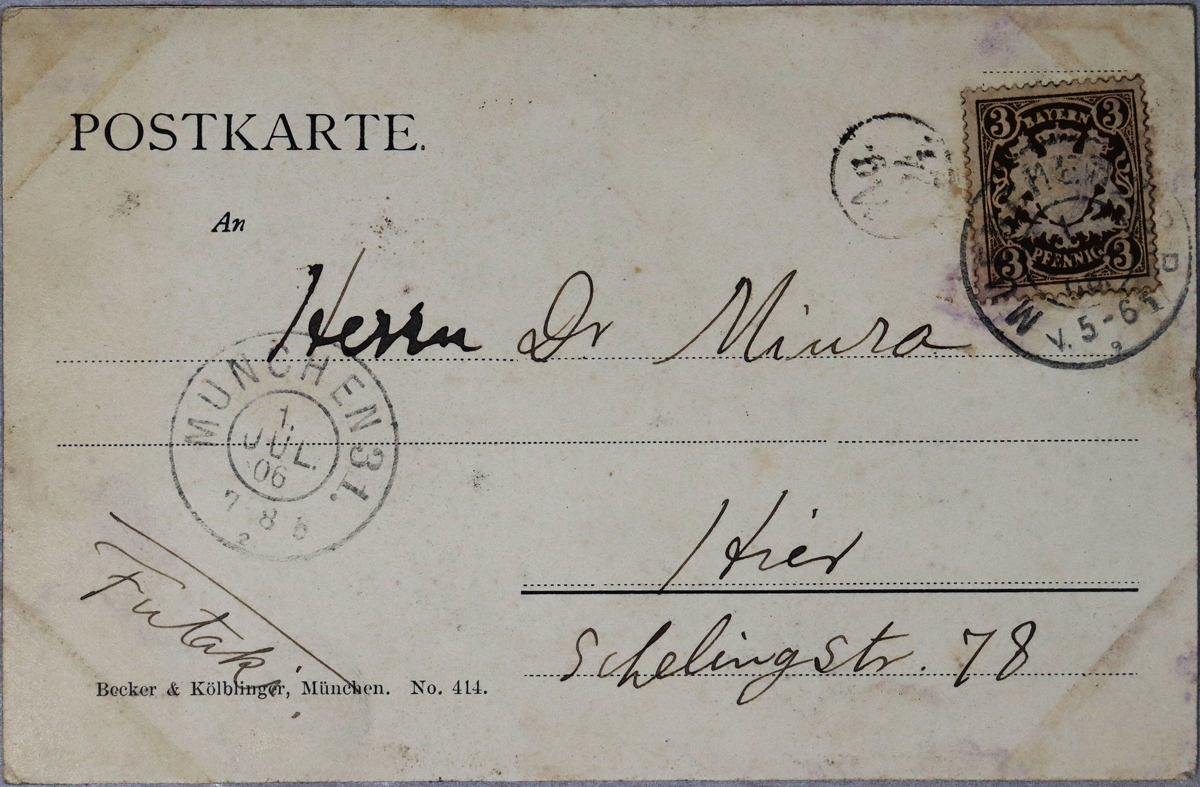 POSTKARTE.
An
Herrn Dr Miura
Hier
Schelingstr. 78
Futaki
Becker & Kölblinger, München. No. 414.
MÜNCHEN 31.
1.
JUL.
06
7 8
2
3 BAYERN 3
3 PFENNIG 3
V. 5-6